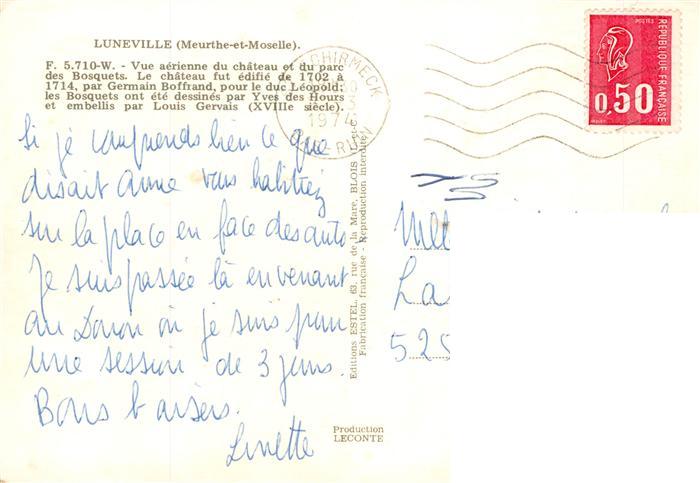 LUNEVILLE (Meurthe-et-Moselle).
F. 5.710-W. - Vue aérienne du château et du parc
des Bosquets. Le château fut édifié de 1702 à
1714, par Germain Boffrand, pour le duc Léopold;
les Bosquets ont été dessinés par Yves des Hours
et embellis par Louis Gervais (XVIIIe siècle).
Si je comprends bien ce que
disait Anne vous habitiez
sur la place en face des autos
Je suis passée là en venant
au Donon où je suis pour
une session de 3 jours.
Bons baisers.
Linette
SCHIRMECK
1974
BAS-RHIN
POSTES
RÉPUBLIQUE FRANÇAISE
0,50
Editions ESTEL, 63, rue de la Mare, BLOIS
Fabrication française - Reproduction interdite
Mll
La
525
Production
LECONTE